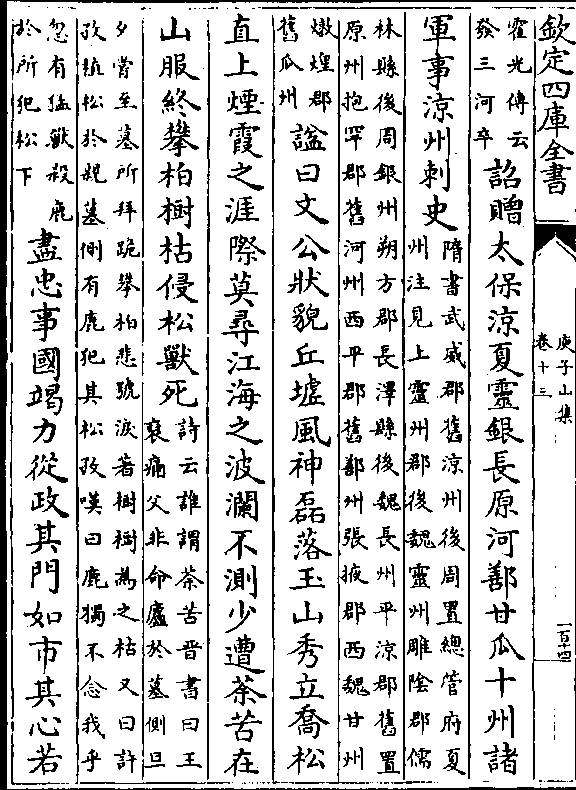 欽定四庫全書
庚子山集
卷十三
一百十四
霍光傳云
發三河卒
詔贈太保涼夏靈銀長原河鄯甘瓜十州諸
軍事涼州刺史
隋書武威郡舊涼州後周置總管府夏
州注見上靈州郡後魏靈州雕陰郡儒
林縣後周銀州朔方郡長澤縣後魏長州平涼郡舊置
原州抱罕郡舊河州西平郡舊鄯州張掖郡西魏甘州
燉煌郡
舊瓜州
諡曰文公狀貌丘墟風神磊落玉山秀立喬松
直上煙霞之涯際莫尋江海之波瀾不測少遭荼苦在
山服終攀柏樹枯侵松獸死
詩云誰謂荼苦晉書曰王
裒痛父非命廬於墓側旦
夕嘗至墓所拜跪攀柏悲號淚著樹樹為之枯又曰許
孜植松於親墓側有鹿犯其松孜嘆曰鹿獨不念我乎
忽有猛獸殺鹿
於所犯松下
盡忠事國竭力從政其門如市其心若